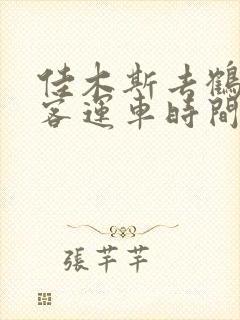 佳木斯去鶴
客運車時間
張芊芊